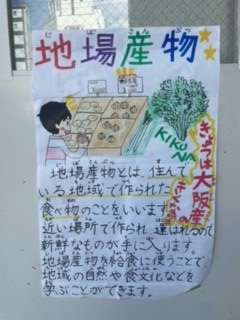 地場産物
KIKUNA
きょうは大阪産
地場産物とは、住んで
いる地域で作られた
食べ物のことをいいます。
近い場所で作られ運ばれるので
新鮮なものが手に入ります。
地場産物を給食に使うことで
地域の自然や食文化などを
学ぶことができます。